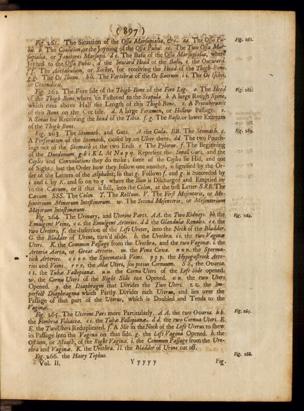 ( 897 )
Fig. 261. The Situation of the Ossa Marsupialia, &c. aa. The Ossa Pu-
bis. b. The Coalition or the Joyning of the Ossa Pubis. cc. The Two Ossa Mar-
supialia, or Janitores Marsupii. dd. The Basis of the Ossa Marsupialia, where
Joyned to the Ossa Pubis.
The Acetabulum, or Socket, for receiving the Head of the Thigh-Bone.
The Os Ilium. The Vertebræ of the Os Sacrum. ii. The Os Ischij,
or Coxendicis.
Fig. 262. The Fore side of the Thigh-Bone of the Fore Leg. a. The Head
of the Thigh-Bone, where 'tis Fastened to the Scapula. b. A large Rough Spine,
which runs above Half the Length of this Thigh-Bone.
of this Bone on the
A Sinus for Receiving the Head of the Tibia. f. g. The Basis or lower Extream
of the Thigh-Bone.
Fig. 263. The Stomach, and Guts. A the Gula. BB. The Stomach.
A Perforation of the Stomach, caused by an Ulcer there. dd. The two Pouch-
ings out of the Stomach at the two Ends. e. The Pylorus. f. The Beginning
of the Duodenum. g.h.i.K.l. At No 9. Repeteing the Small Guts, and the
Copies and Convolutions they do make; some of the Copies lie Hid, and out
of Sight; but the Order how they follow one another, is signified by the Or-
der of the Letters of the Alphabet;
where the Ilion is Discharged and Emptied in-
to the Cæcum, or if that is full, into the Colon, at the first Letter S.RR. The
Cæcum. SSS. The Colon. T. The Rectum. V. The First Mesenterie, or Me-
senterium Minorum Intestinorum. W. The Second Mesenterie, or Mesenterium
Majorum Intestinorum.
Fig. 264. The Urinary, and Uterine Parts. AA. The Two Kidneys. bb. the
Emulgent Veins, cc. the Emulgent Arteries. dd. the Glandulæ Renales. ee. the
two Ureters, f. the Insertion of the Left Ureter, into the Neck of the Bladder,
G. the Bladder of Urine, turn'd aside. h. the Urethra. ii. the two Vaginal
Uteri. K. the Common Passage from the Urethra, and the two Vaginæ. l. the
Arteria Aorta, or Great Artery. m. the Vena Cava. nnn. the Spermat-
ick Arteries. oooo. the Spermatick Veins. ppp. the Hypogastrick Arte-
ries and Veins. the Ovaria,
the Tubæ Fallopianæ. the Cornu Uteri of the Left side opened.
w. the Cornu Uteri of the Right Side not Opened. the two Uteri
Opened. y. the Diaphragm that Divides the Two Uteri. z.z. the Im-
perfect Diaphragm which Partly Divides each Uterus, and lies over the
Passage of that part of the Uterus, which is Doubled and Tends to the
Vaginæ.
Fig. 265. The Uterine Parts more Particularly. AA. the two Ovaria. bb.
the Fimbria Foliacea. cc. the Tubæ Fallopianæ. dd. the two Cornua Uteri. E
E. the Two Uteri Reduplicated. f. A Slit in the Neck of the Left Uterus to shew
its Passage into the Vagina on that side. g. the Left Vagina Opened. h. the
Ostium, or Mouth, of the Right Vagina. i. the Common Passage from the Ure-
thra and Vaginæ. K. the Urethra. ll. the Bladder of Urine cut off.
Fig. 266. the Hairy Tophus.
Vol. II. Y y y y y Fig.
Fig. 261.
Fig. 262.
Fig. 263.
Fig. 264.
Fig. 265.
Fig. 266.